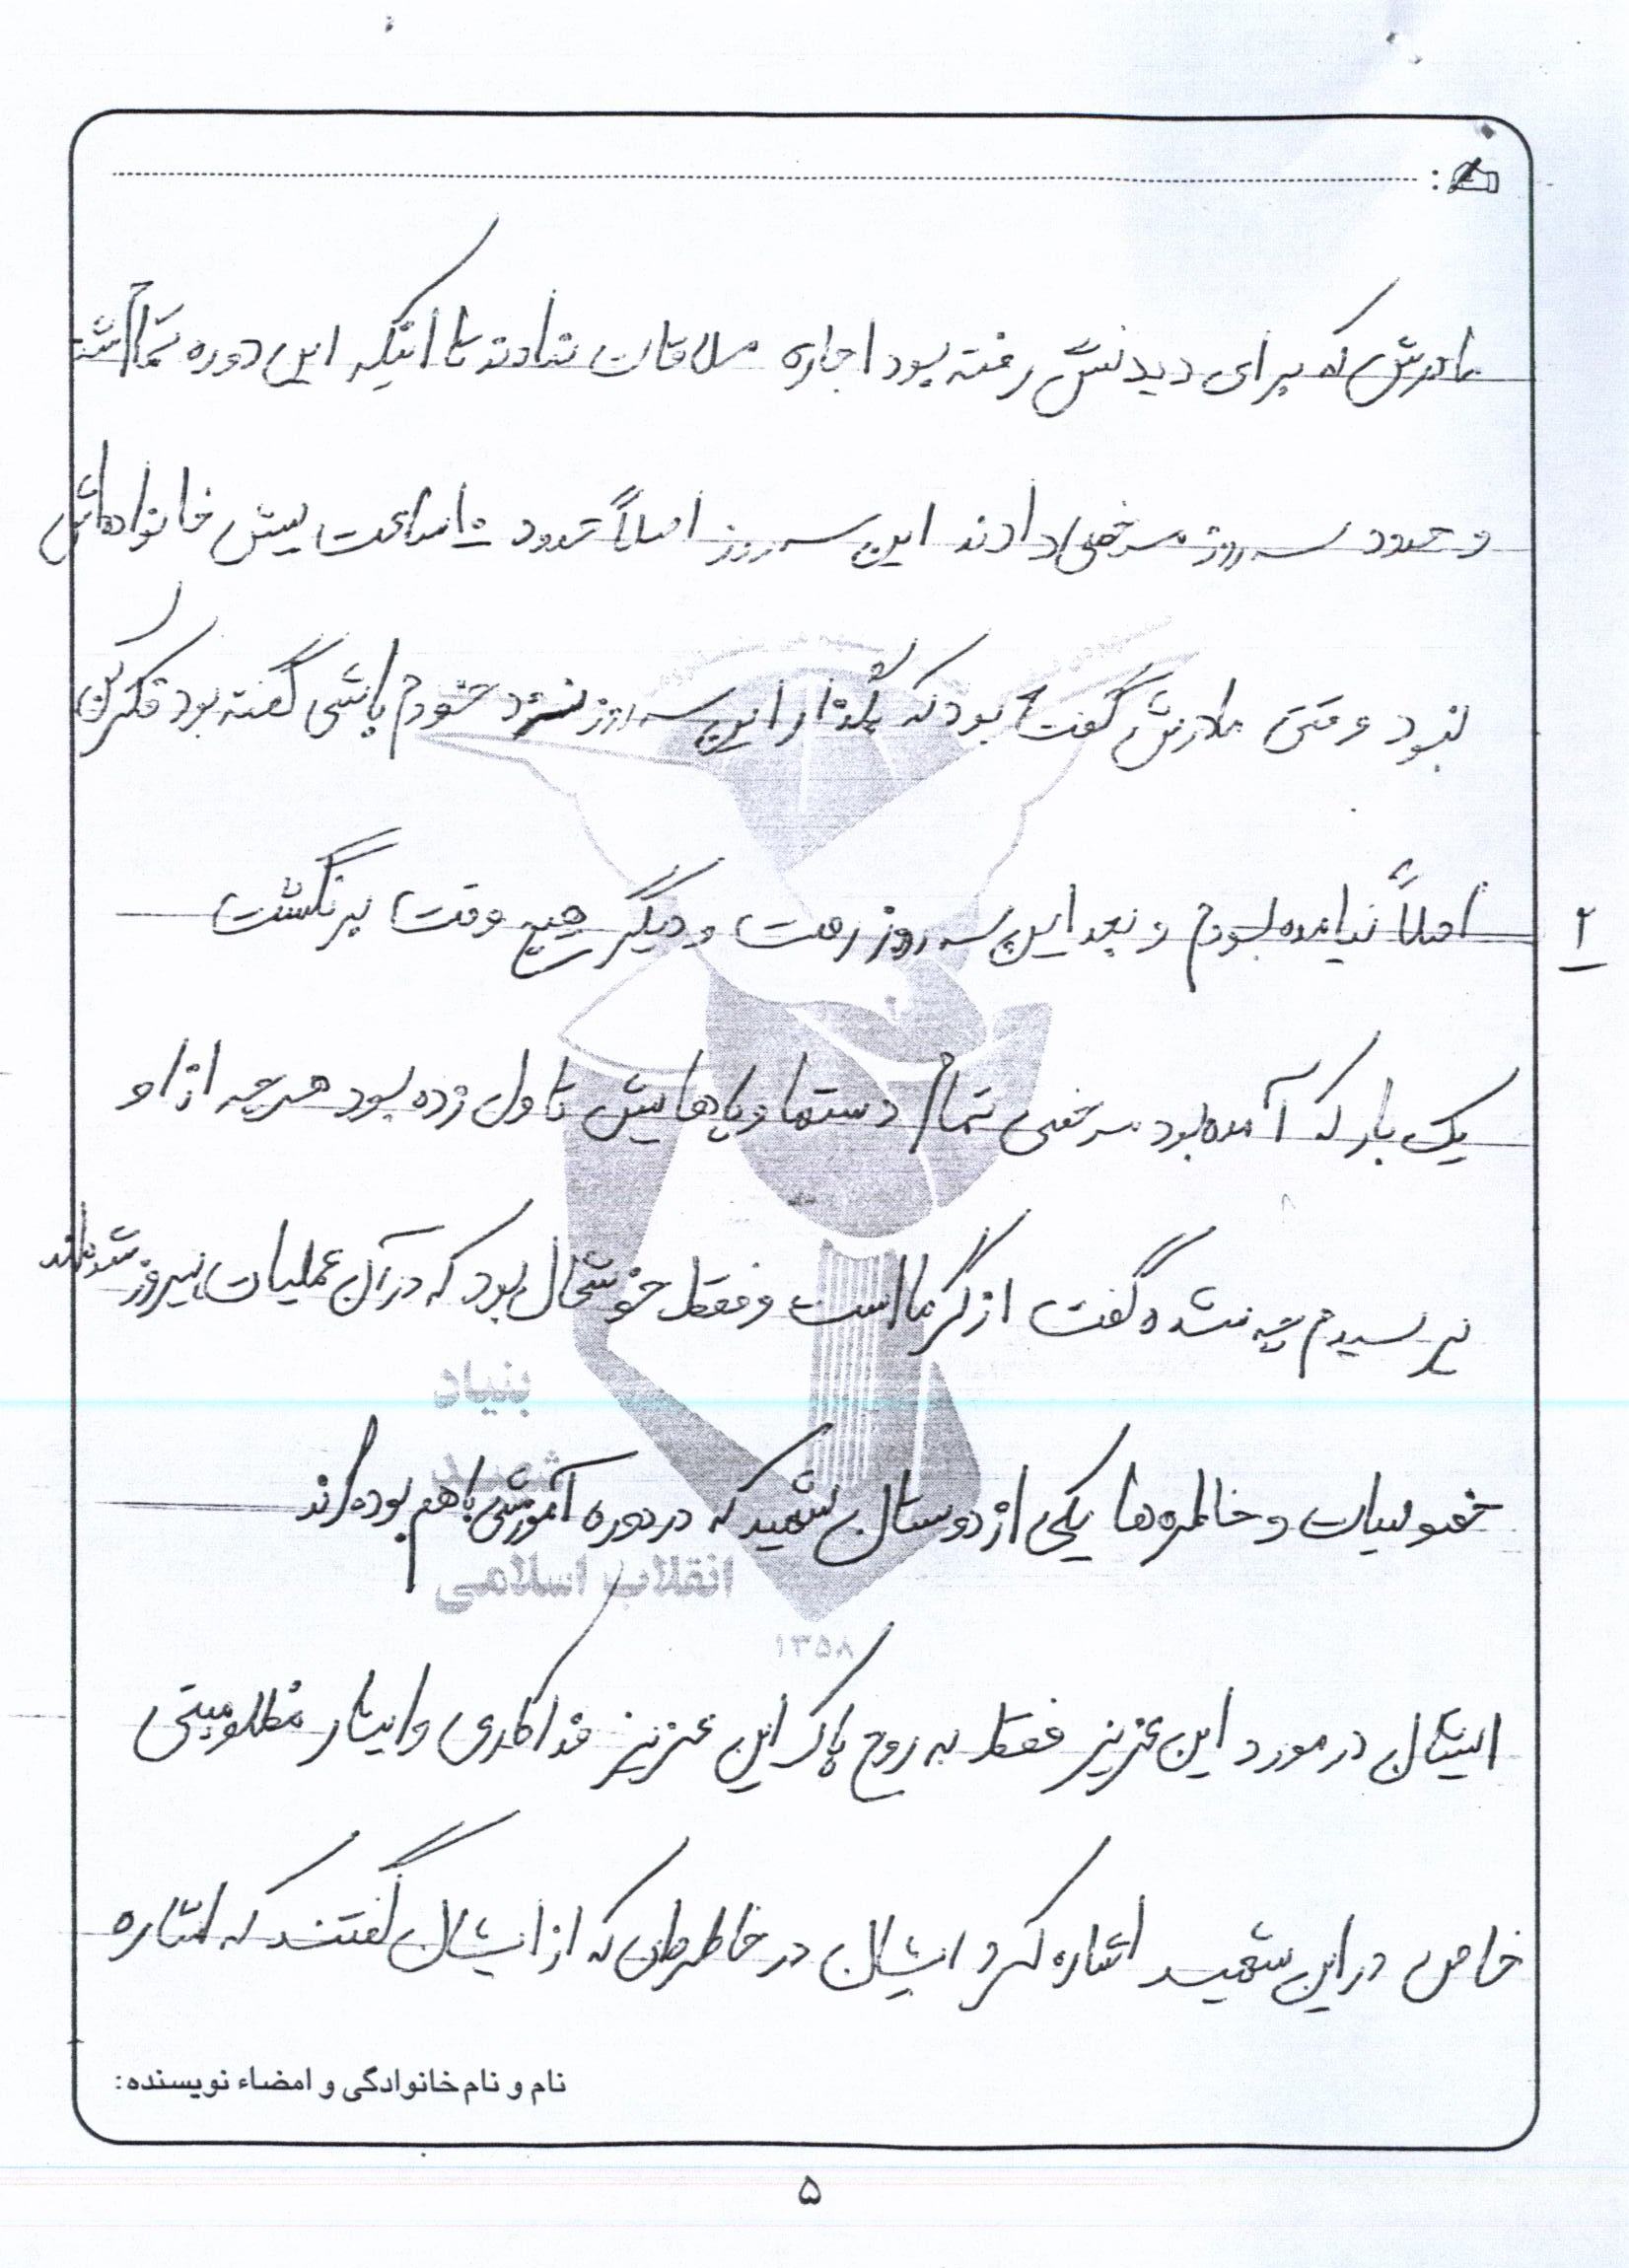 مادرش که برای دیدنش رفته بود اجازه ملاقات ندادند تا اینکه این دوره تمام شد
و حدود سه روز مرخصی دادند این سه روز اصلاً حدود ساعت پیش خانواده‌اش
نبود وقتی مادرش گفت بود که بگذار این سه روز نزد خودم باشی گفته بود فکر کن
۲ اصلاً نیامده بودم و بعد این سه روز رفت و دیگر هیچ وقت برنگشت
یک بار که آمده بود مرخصی تمام دستها و پاهایش تاول زده بود هر چه از او
پرسیدم چه شده گفت از گرما است و فقط خوشحال بود که در آن عملیات پیروز شده‌اند
خصوصیات و خاطره‌ها یکی از دوستان شهید که در دوره آموزشی با هم بوده‌اند
ایشان در مورد این عزیز فقط به روح پاک این عزیز فداکاری و ایثار مظلومیتی
خاص در این شهید اشاره کرد ایشان در خاطره‌ای که از ایشان گفتند که اشاره
بنیاد
شهید
انقلاب اسلامی
۱۳۵۸
نام و نام خانوادگی و امضاء نویسنده:
۵